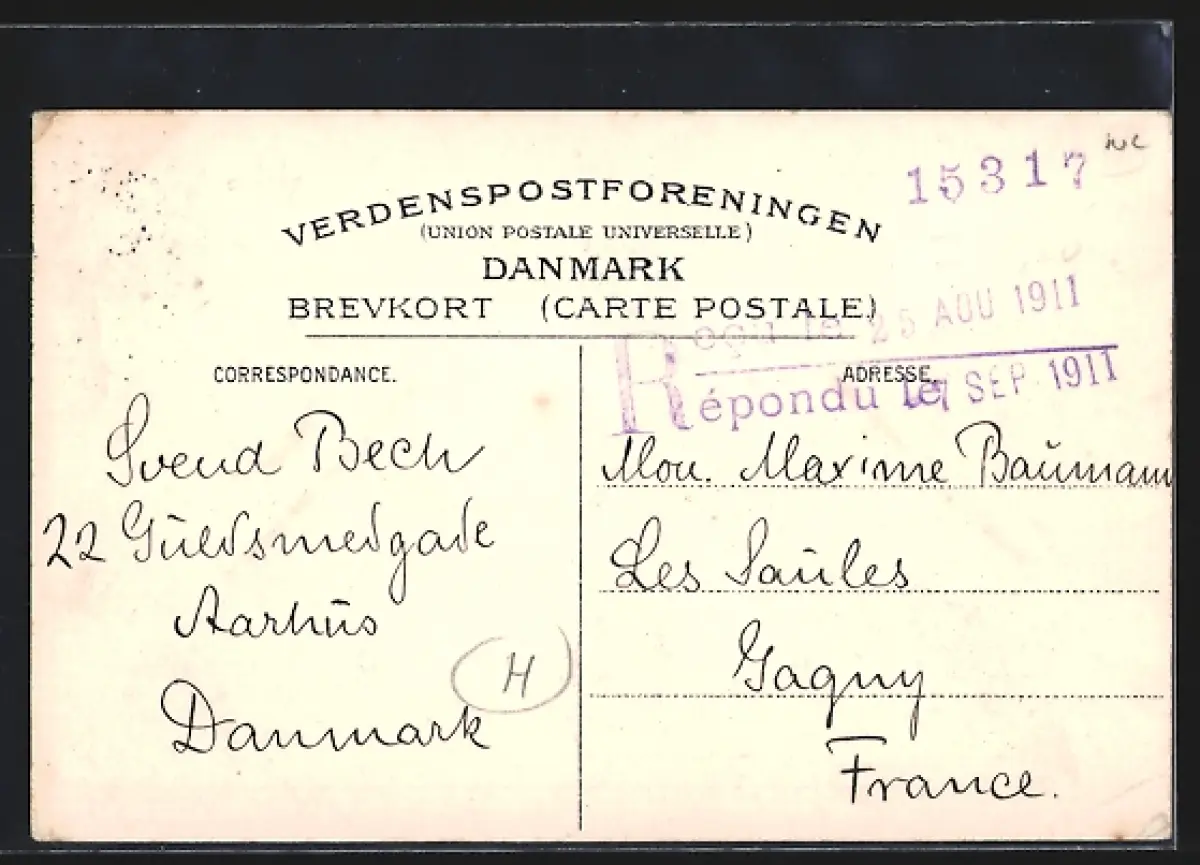 15317
VERDENSPOSTFORENINGEN
(UNION POSTALE UNIVERSELLE)
DANMARK
BREVKORT (CARTE POSTALE.)
Reçu le 25 AOU 1911
Répondu le 7 SEP 1911
CORRESPONDANCE.
Svend Bech
22 Güldsmedgade
Aarhüs
Danmark
H
ADRESSE.
Mon. Maxime Baümann
Les Saüles
Gagny
France.